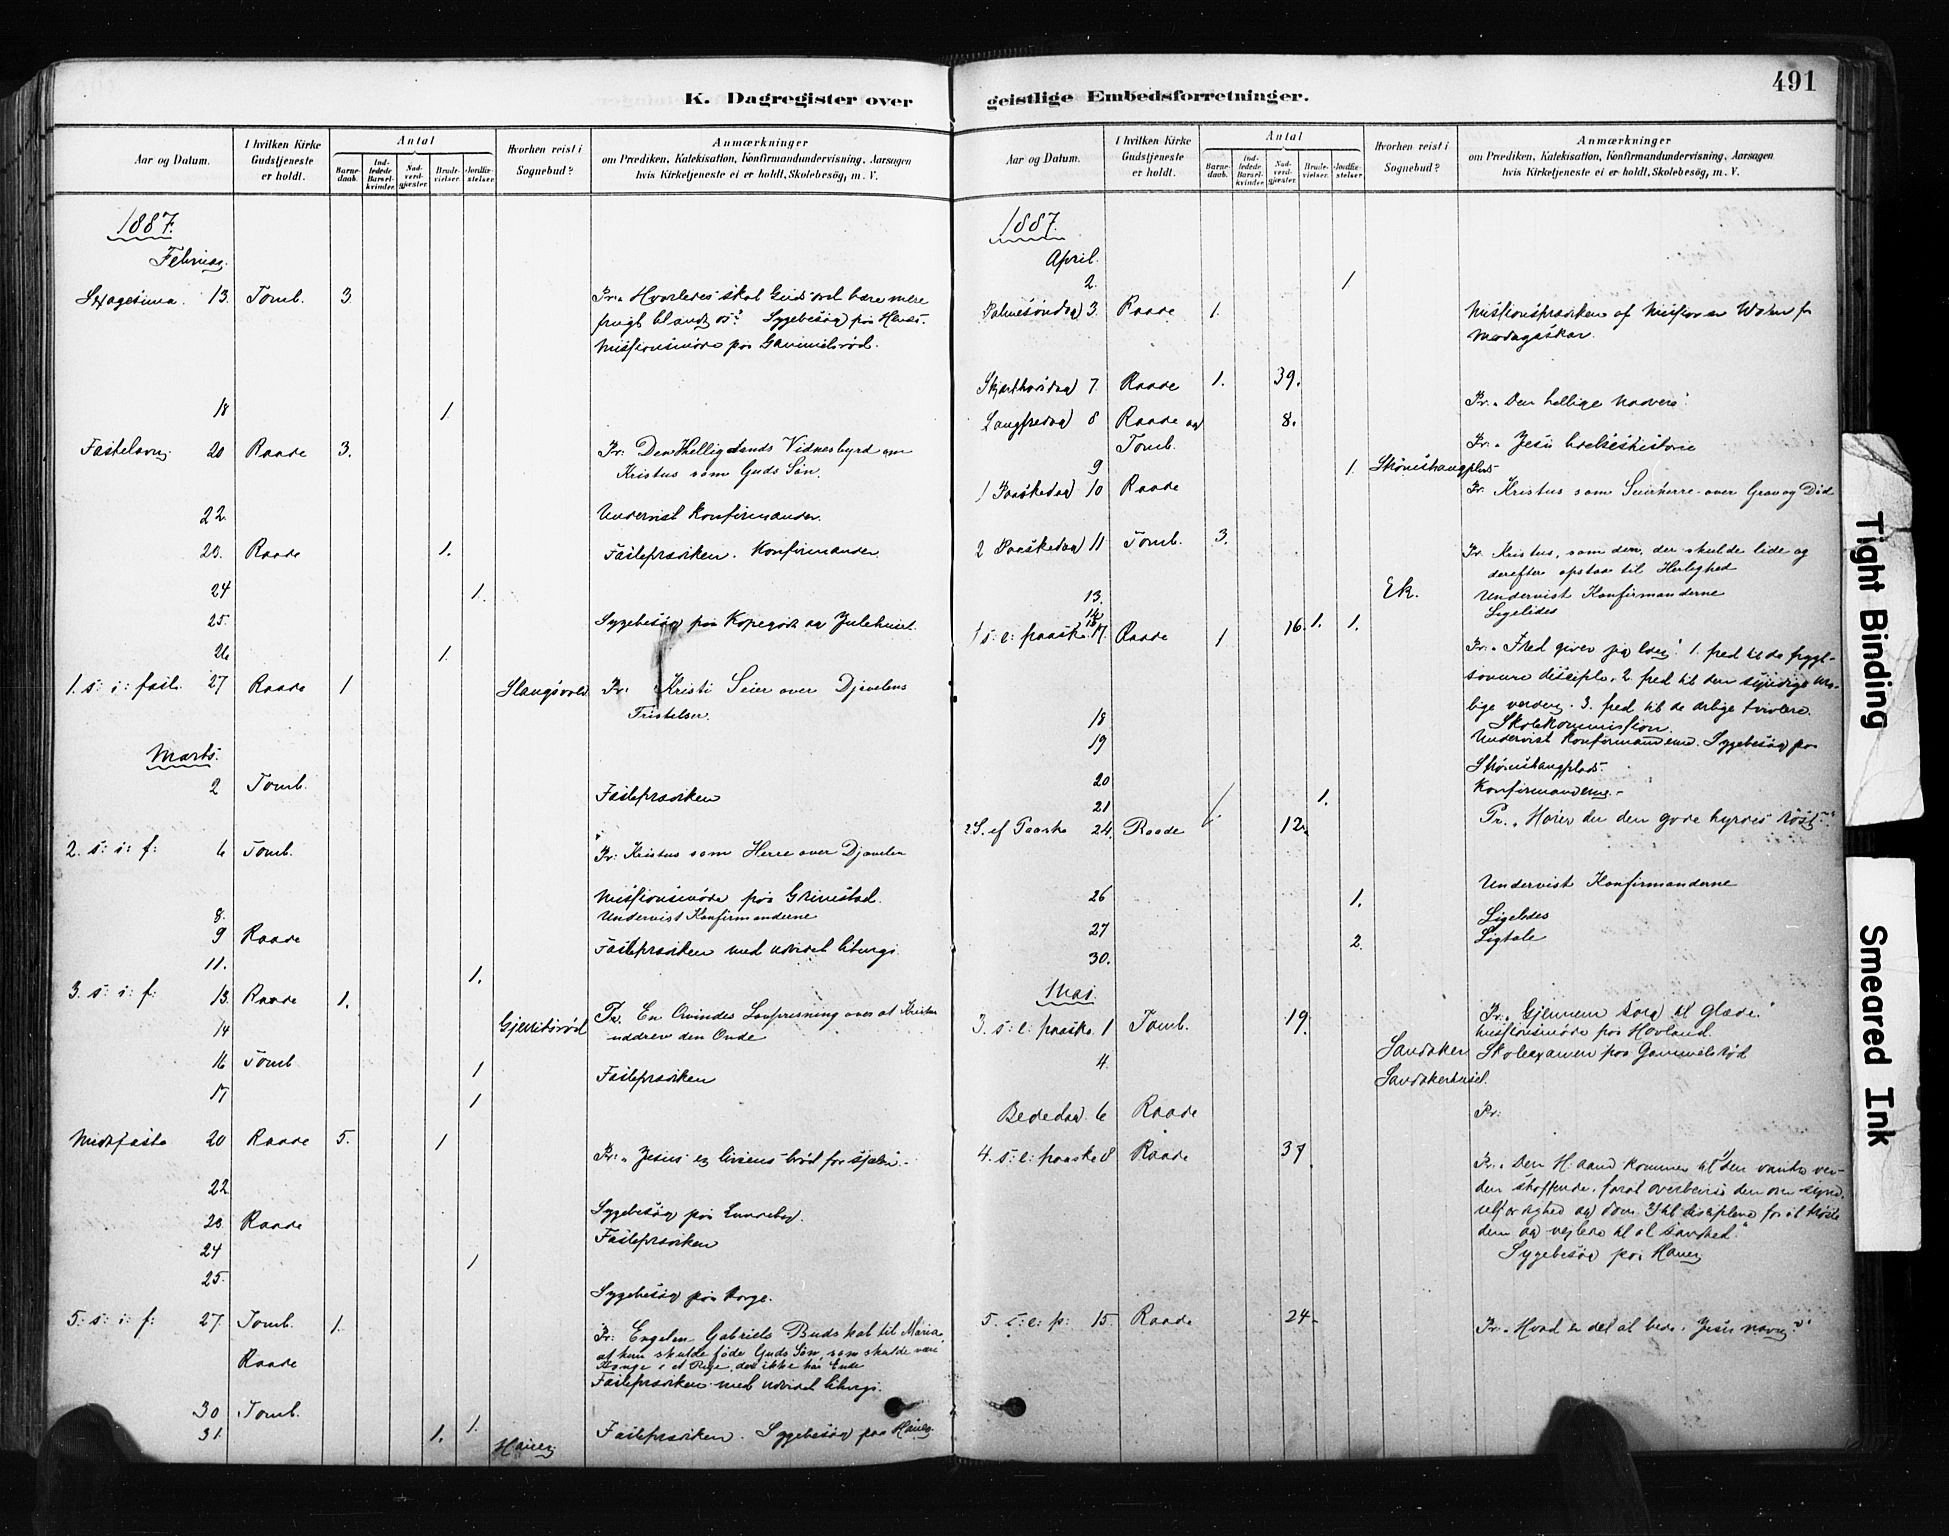 491
K. Dagregister over
geistlige Embedsforretninger.
Aar og Datum.
I hvilken Kirke Gudstjeneste er holdt.
Antal
Barnedaab.
Indledede Barselkvinder.
Nadverdgjæster.
Brudevielser.
Jordfæstelser.
Hvorhen reist i Sognebud?
Anmærkninger
om Prædiken, Katekisation, Konfirmandundervisning, Aarsagen
hvis Kirketjeneste ei er holdt, Skolebesøg, m. V.
1887.
Februar.
Sexagesima. 13. Tomb. 3 Pr. „Hvorledes skal Guds ord bære mere
frugt blandt os?" Sygebesøg paa
Missionsmøde paa Gammelsrød.
18 1.
Fastelavn 20 Raade 3. Pr: Den Hellig Aands Vidnesbyrd om
Kristus som Guds Søn.
22. Undervist Konfirmander.
23. Raade 1. Fasteprædiken. Konfirmander
24 1.
25. Sygebesøg paa Kopegård og Julehuset.
26 1.
1. s: i: fast. 27 Raade 1 Slangsvold Pr: Kristi Seier over Djævelens
Fristelser.
Marts.
2 Tomb. Fasteprædiken
2. s: i: f: 6 Tomb. Pr: Kristus som Herre over Djævelen
Missionsmøde paa Grimstad.
8. Undervist Konfirmanderne
9 Raade Fasteprædiken med udvidet liturgi.
11. 1.
3. s: i: f: 13. Raade 1. Pr. En Qvindes Lovprisning over at Kristus
14 uddrev den Onde
16 Tomb 1 Fasteprædiken
17 1
Midtfaste 20 Raade 5. 1 Pr: „Jesus er livsens brød for
22 Sygebesøg paa
23. Raade Fasteprædiken
24 1
25. Sygebesøg paa Aarge.
5: s: i: f: 27. Tomb. 1. Pr: Engelen Gabriels Budskab til Maria,
at hun skulde føde Guds Søn, som skulde være
Konge i et Rige, der ikke har Ende
Raade Fasteprædiken med udvidet liturgi.
30 Tomb. 1.
31. 1. Haug Fasteprædiken. Sygebesøg paa Haug.
Aar og Datum.
I hvilken Kirke Gudstjeneste er holdt.
Antal
Barnedaab.
Indledede Barselkvinder.
Nadverdgjæster.
Brudevielser.
Jordfæstelser.
Hvorhen reist i Sognebud?
Anmærkninger
om Prædiken, Katekisation, Konfirmandundervisning, Aarsagen
hvis Kirketjeneste ei er holdt, Skolebesøg, m. V.
1887.
April.
2. 1
Palmesøndag 3. Raade 1. Missionsprædiken af Missionær fr
Madagaskar.
Skjærthorsdag 7 Raade 1. 39. Pr. „Den hellige nadvere".
Langfredag 8 Raade og Tomb. 8. Pr. „Jesu lidelseshistorie
9 1. Skrønishaugplads
1 Paaskedag 10 Raade Pr. Kristus som Seierherre over Grav og Død
2 Paaskedag 11 Tomb. 3. Pr. Kristus, som den, der skulde lide og
derefter opstaa til Herlighed
13. Ek. Undervist Konfirmanderne
14 Ligeledes
1 s: e: paaske. 17. Raade 1 16. 1. 1. Pr. „Fred giver jeg eder": 1. fred til de frygt-
somme disciple. 2. fred til den syndige
lige verden. 3. fred til de ærlige tvivlere.
18 Skolekommission
19 Undervist Konfirmanderne. Sygebesøg paa
Skrønishaugplads.
20 Konfirmanderne.
21 1.
2. S. ef Paaske 24. Raade 12. Pr. „Hører du den gode hyrdes røst?"
26 1. Undervist Konfirmanderne
27 Ligeledes
30. 2. Ligtale
Mai.
3. s: e: paaske 1 Tomb. 19. Pr. „Gjennem sorg til glæde."
Missionsmøde paa Hovland.
4. Sandaker Skoleexamen paa Gammelsrød
Sandakerhuset.
Bededag. 6 Raade Pr:
4. s: e: paaske 8 Raade 37. Pr. „Den H. aand kommer til den vantro ver-
den straffende, forat overbevise den om synd,
retfærdighed og dom. til disciplene for at trøste
dem og vejlede til al sandhed."
Sygebesøg paa Haug
5. s: e: p: 15. Raade 24. Pr. „Hvad er det at bede i Jesu navn?"
Tight Binding
Smeared Ink